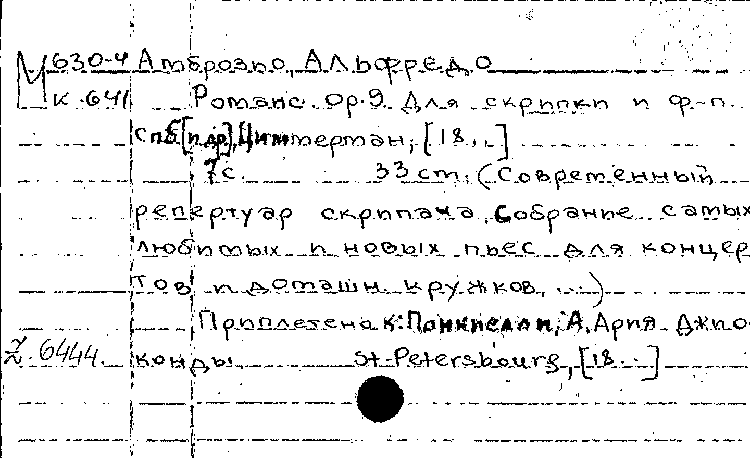 М 630-4 Амброзио, Альфредо
к. 641 Романс. Op. 9. Для скрипки и ф-п.
Спб [и др], Циммерман, [18..]
7с. 33 cm. (Современный
репертуар скрипача. Собрание самых
любимых и новых пьес для концер
тов и домашн. кружков, ...)
Приплетена к: Понкиелли, А. Ария Джио-
Z. 6444. конды St-Petersbourg, [18...]